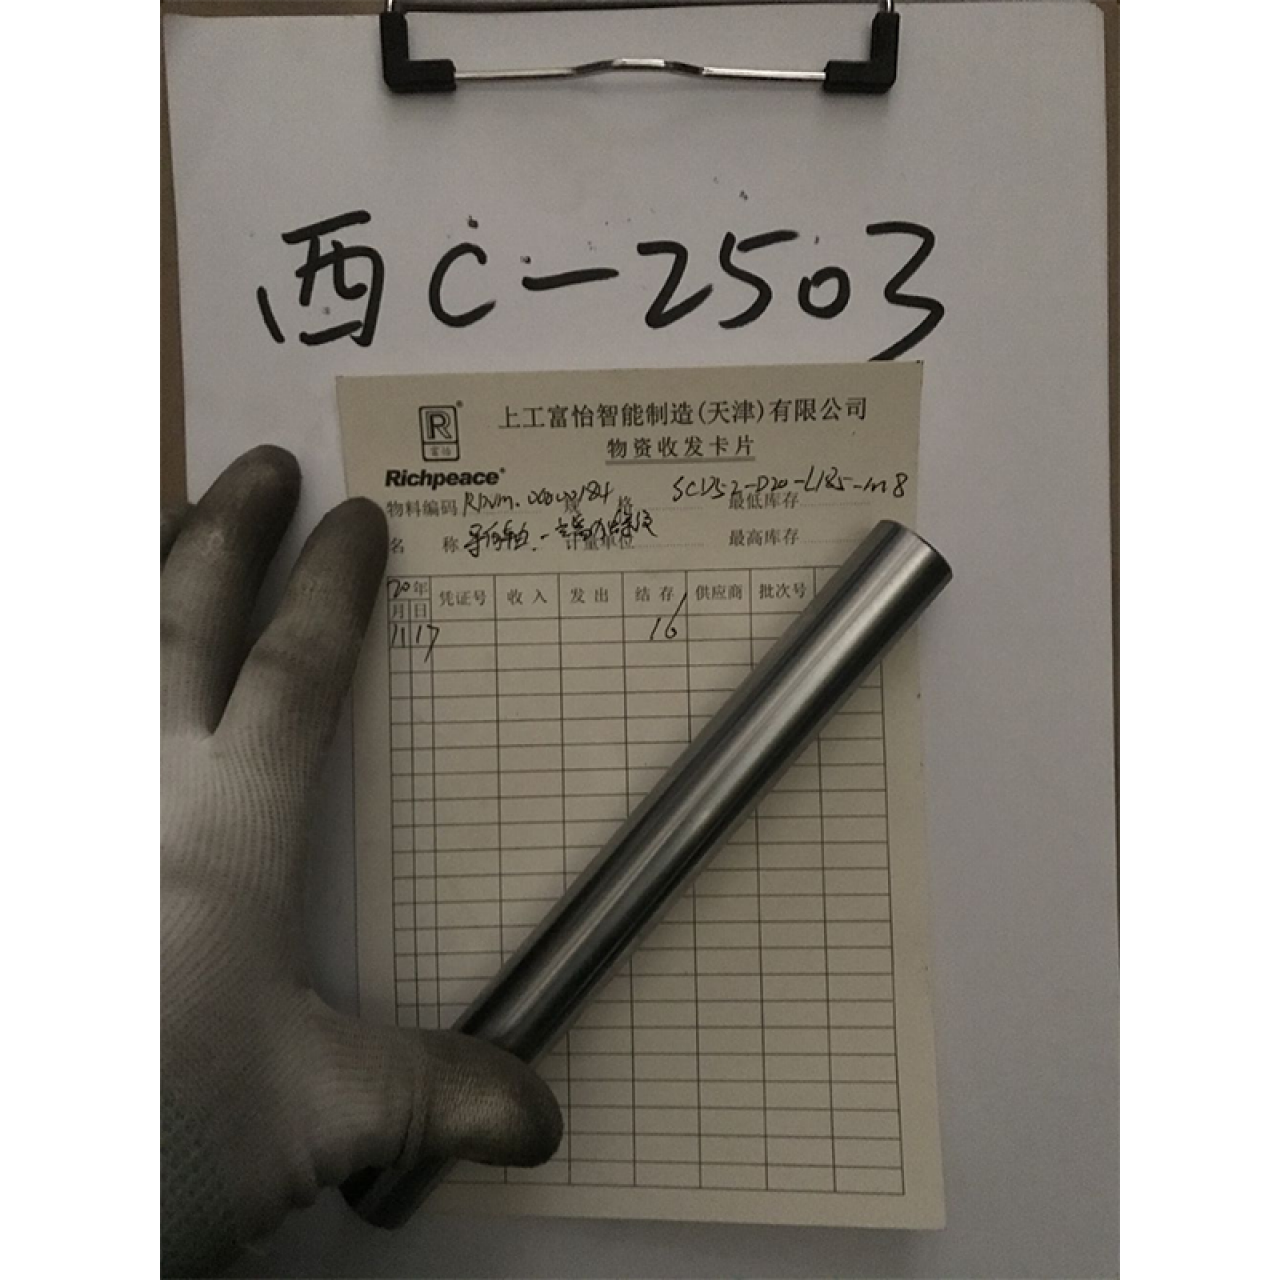 西C-2503
R
富怡
Richpeace
上工富怡智能制造(天津)有限公司
物资收发卡片
物料编码 规格 SCV52-D20-L185-M8 最低库存
名称 导向轴.一端内螺纹 计量单位 最高库存
20年 凭证号 收入 发出 结存 供应商 批次号
月 日
11 17 16